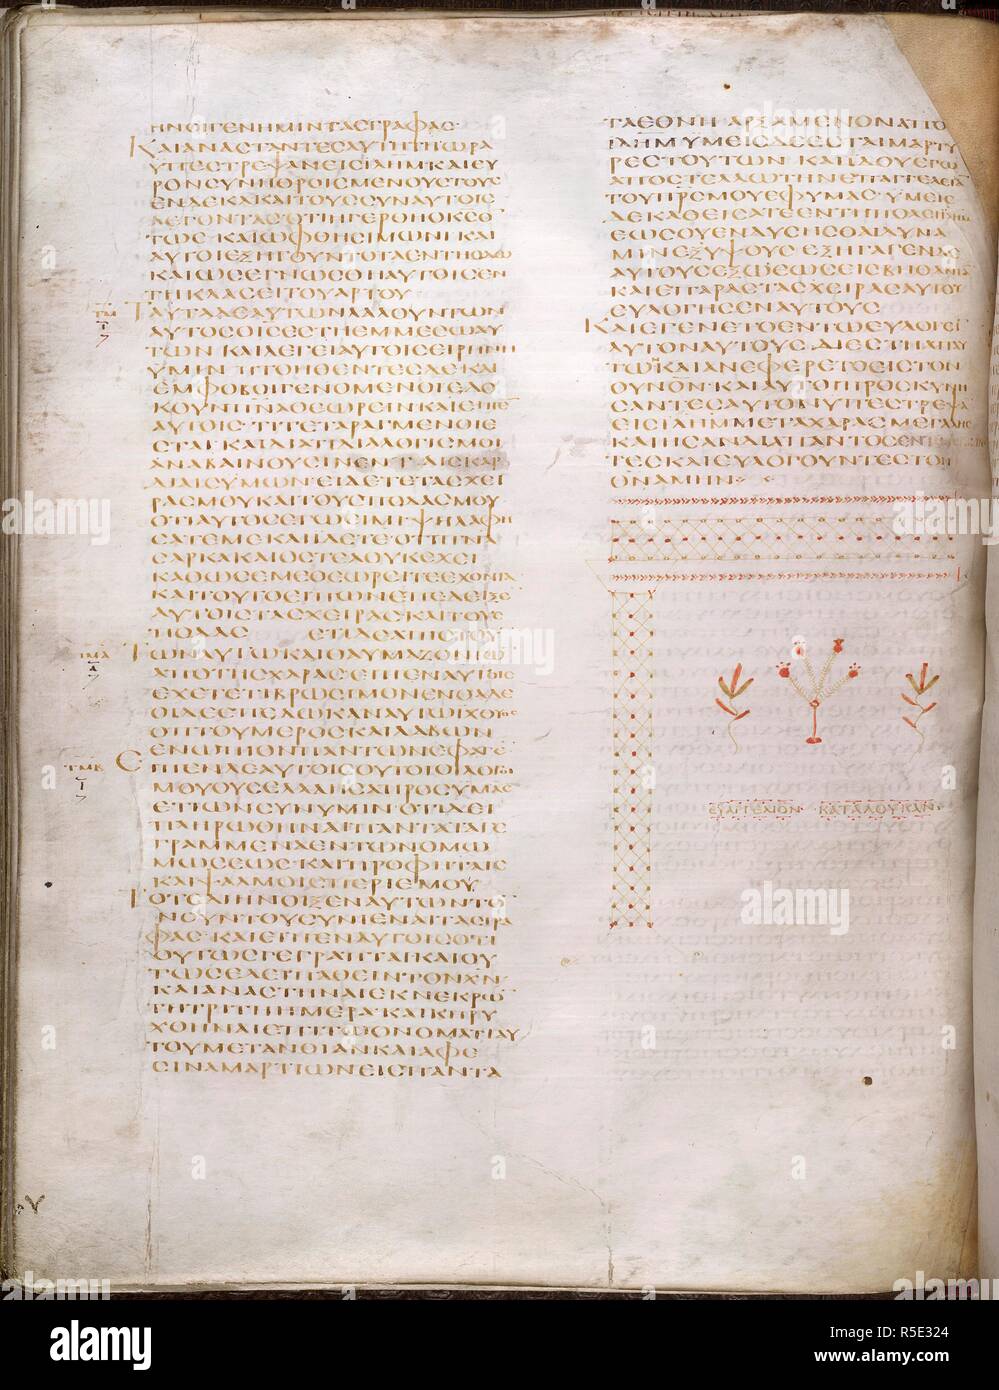 ΗΝΟΙΓΕΝΗΜΙΝΤΑΣΓΡΑΦΑΣ·
ΚΑΙΑΝΑΣΤΑΝΤΕΣΑΥΤΗΤΗΩΡΑ
ΥΠΕΣΤΡΕΨΑΝΕΙΣΙΛΗΜ·ΚΑΙΕΥ
ΡΟΝΣΥΝΗΘΡΟΙΣΜΕΝΟΥΣΤΟΥΣ
ΕΝΔΕΚΑΚΑΙΤΟΥΣΣΥΝΑΥΤΟΙΣ
ΛΕΓΟΝΤΑΣΟΤΙΗΓΕΡΘΗΟΚΣΟ
ΤΩΣ·ΚΑΙΩΦΘΗΣΙΜΩΝΙΚΑΙ
ΑΥΤΟΙΕΞΗΓΟΥΝΤΟΤΑΕΝΤΗΟΔΩ
ΚΑΙΩΣΕΓΝΩΣΘΗΑΥΤΟΙΣΕΝ
ΤΗΚΛΑΣΕΙΤΟΥΑΡΤΟΥ
ΤΑΥΤΑΔΕΑΥΤΩΝΛΑΛΟΥΝΤΩΝ
ΑΥΤΟΣΟΙΣΕΣΤΗΕΜΜΕΣΩΑΥ
ΤΩΝΚΑΙΛΕΓΕΙΑΥΤΟΙΣΕΙΡΗΝΗ
ΥΜΙΝ ΠΤΟΗΘΕΝΤΕΣΔΕΚΑΙ
ΕΜΦΟΒΟΙΓΕΝΟΜΕΝΟΙΕΔΟ
ΚΟΥΝΠΝΑΘΕΩΡΕΙΝ·ΚΑΙΕΙΠΕ
ΑΥΤΟΙΣ·ΤΙΤΕΤΑΡΑΓΜΕΝΟΙΕ
ΣΤΑΙ·ΚΑΙΔΙΑΤΙΔΙΑΛΟΓΙΣΜΟΙ
ΑΝΑΒΑΙΝΟΥΣΙΝΕΝΤΑΙΣΚΑΡ
ΔΙΑΙΣΥΜΩΝ·ΕΙΔΕΤΕΤΑΣΧΕΙ
ΡΑΣΜΟΥΚΑΙΤΟΥΣΠΟΔΑΣΜΟΥ
ΟΤΙΑΥΤΟΣΕΓΩΕΙΜΙ·ΨΗΛΑΦΗ
ΣΑΤΕΜΕΚΑΙΙΔΕΤΕΟΤΙΠΝΑ
ΣΑΡΚΑΚΑΙΟΣΤΕΑΟΥΚΕΧΕΙ
ΚΑΘΩΣΕΜΕΘΕΩΡΕΙΤΕΕΧΟΝΤΑ
ΚΑΙΤΟΥΤΟΕΙΠΩΝΕΠΕΔΕΙΞΕ
ΑΥΤΟΙΣΤΑΣΧΕΙΡΑΣ·ΚΑΙΤΟΥΣ
ΠΟΔΑΣ ΕΤΙΔΕΑΠΙΣΤΟΥ
ΤΩΝΑΥΤΩΚΑΙΘΑΥΜΑΖΟΝΤΩ
ΑΠΟΤΗΣΧΑΡΑΣΕΙΠΕΝΑΥΤΟΙΣ
ΕΧΕΤΕΤΙΒΡΩΣΙΜΟΝΕΝΘΑΔΕ
ΟΙΔΕΕΠΕΔΩΚΑΝΑΥΤΩΙΧΘΥΟΣ
ΟΠΤΟΥΜΕΡΟΣΚΑΙΛΑΒΩΝ
ΕΝΩΠΙΟΝΠΑΝΤΩΝΕΦΑΓΕ
ΕΙΠΕΝΔΕΑΥΤΟΙΣΟΥΤΟΙΟΙΛΟΓΟΙ
ΜΟΥΟΥΣΕΛΑΛΗΣΑΠΡΟΣΥΜΑΣ
ΕΤΙΩΝΣΥΝΥΜΙΝ·ΟΤΙΔΕΙ
ΠΛΗΡΩΘΗΝΑΙΠΑΝΤΑΤΑΓΕ
ΓΡΑΜΜΕΝΑΕΝΤΩΝΟΜΩ
ΜΩΣΕΩΣ·ΚΑΙΠΡΟΦΗΤΑΙΣ
ΚΑΙΨΑΛΜΟΙΣΠΕΡΙΕΜΟΥ·
ΤΟΤΕΔΙΗΝΟΙΞΕΝΑΥΤΩΝΤΟ
ΝΟΥΝΤΟΥΣΥΝΙΕΝΑΙΤΑΣΓΡΑ
ΦΑΣ·ΚΑΙΕΙΠΕΝΑΥΤΟΙΣΟΤΙ
ΟΥΤΩΣΓΕΓΡΑΠΤΑΙΚΑΙΟΥ
ΤΩΣΕΔΕΙΠΑΘΕΙΝΤΟΝΧΝ·
ΚΑΙΑΝΑΣΤΗΝΑΙΕΚΝΕΚΡΩ
ΤΗΤΡΙΤΗΗΜΕΡΑ·ΚΑΙΚΗΡΥ
ΧΘΗΝΑΙΕΠΙΤΩΟΝΟΜΑΤΙΑΥ
ΤΟΥΜΕΤΑΝΟΙΑΝΚΑΙΑΦΕ
ΣΙΝΑΜΑΡΤΙΩΝΕΙΣΠΑΝΤΑ
ΤΑΕΘΝΗ·ΑΡΞΑΜΕΝΟΝΑΠΟ
ΙΛΗΜ·ΥΜΕΙΣΔΕΕΣΤΑΙΜΑΡΤΥ
ΡΕΣΤΟΥΤΩΝ·ΚΑΙΙΔΟΥΕΓΩ
ΑΠΟΣΤΕΛΛΩΤΗΝΕΠΑΓΓΕΛΙΑ
ΤΟΥΠΡΣΜΟΥΕΦΥΜΑΣ·ΥΜΕΙΣ
ΔΕΚΑΘΕΙΣΑΤΕΕΝΤΗΠΟΛΕΙΙΛΗΜ
ΕΩΣΟΥΕΝΔΥΣΗΣΘΑΙΔΥΝΑ
ΜΙΝΕΞΥΨΟΥΣ ΕΞΗΓΑΓΕΝΔΕ
ΑΥΤΟΥΣΕΞΩΕΩΣΕΙΣΒΗΘΑΝΙΑ
ΚΑΙΕΠΑΡΑΣΤΑΣΧΕΙΡΑΣΑΥΤΟΥ
ΕΥΛΟΓΗΣΕΝΑΥΤΟΥΣ
ΚΑΙΕΓΕΝΕΤΟΕΝΤΩΕΥΛΟΓΕΙ
ΑΥΤΟΝΑΥΤΟΥΣ·ΔΙΕΣΤΗΑΠΑΥ
ΤΩΚΑΙΑΝΕΦΕΡΕΤΟΕΙΣΤΟΝ
ΟΥΝΟΝ·ΚΑΙΑΥΤΟΙΠΡΟΣΚΥΝΗ
ΣΑΝΤΕΣΑΥΤΟΝΥΠΕΣΤΡΕΨΑ
ΕΙΣΙΛΗΜΜΕΤΑΧΑΡΑΣΜΕΓΑΛΗΣ
ΚΑΙΗΣΑΝΔΙΑΠΑΝΤΟΣΕΝΤΩ
ΤΕΣΚΑΙΕΥΛΟΓΟΥΝΤΕΣΤΟΝ
ΘΝΑΜΗΝ·
ΕΥΑΓΓΕΛΙΟΝ· ΚΑΤΑΛΟΥΚΑΝ·
ΤΜ
ΤΜΑ
ΤΜΒ
alamy
Image ID: R5E324
www.alamy.com